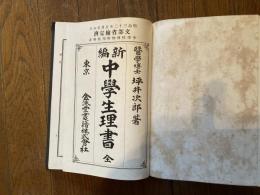 文部省檢定濟
醫學博士 坪井次郎著
新編
中學生理書 全
東京 金港堂書籍株式會社